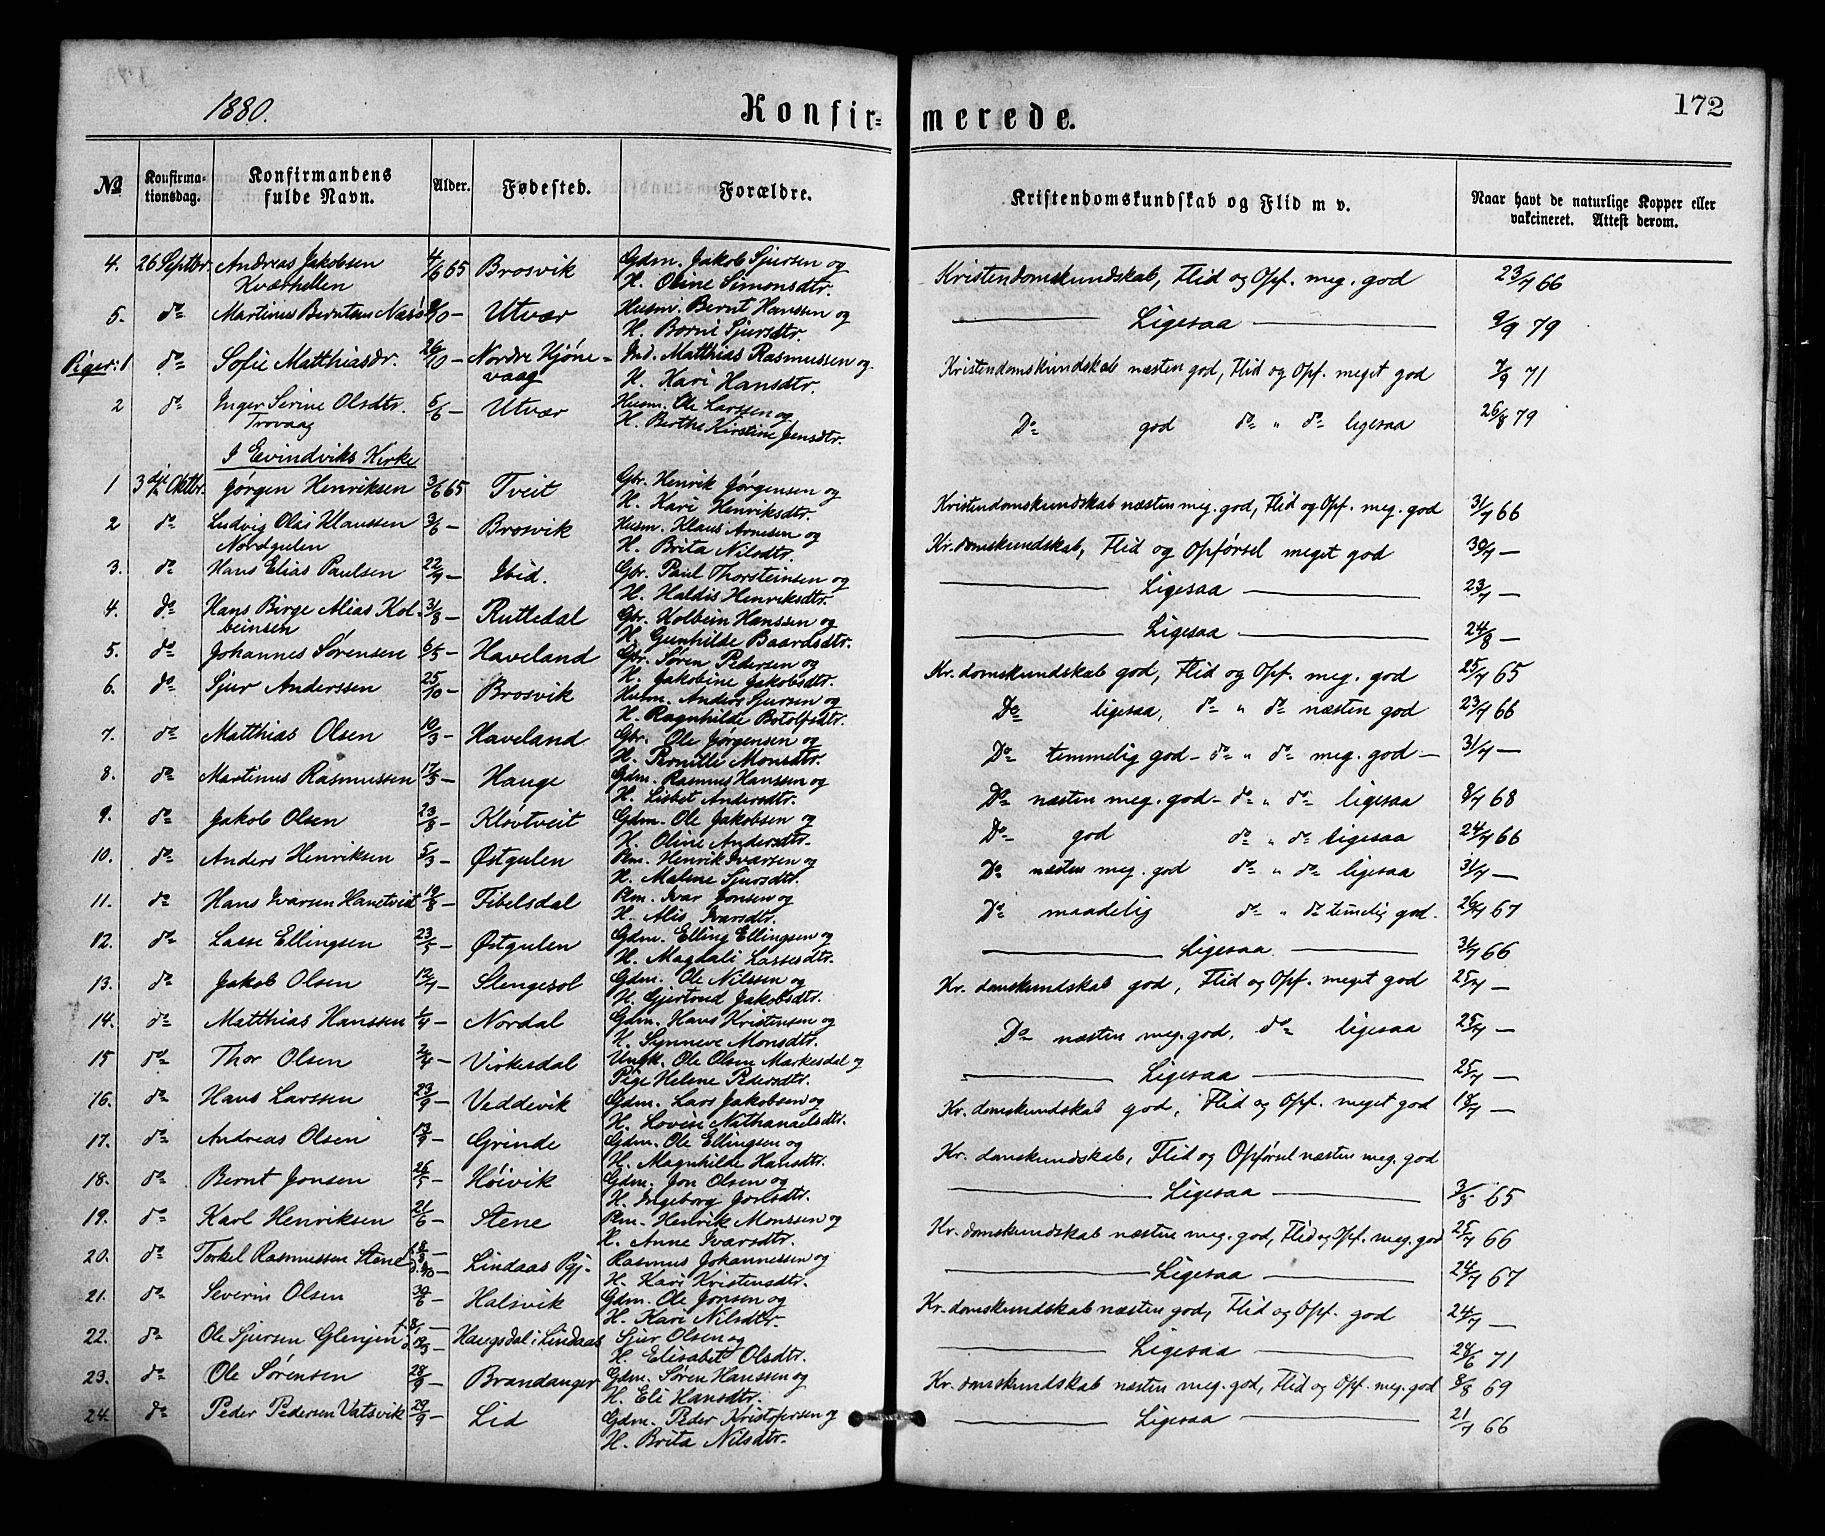 1880.
Konfir-
merede.
172
No
Konfirma-
tionsdag.
Konfirmandens
fulde Navn.
Alder.
Fødested.
Forældre.
Kristendomskundskab og Flid m v.
Naar havt de naturlige Kopper eller
vakcineret. Attest derom.
4. 26 Septbr. Andreas Jakobsen 4/6 65 Brosvik Gdm. Jakob Sjursen og
Kværhellen H. Oline Simonsdtr. Kristendomskundskab, Flid og Opf. meg. god 23/7 66
5. do Martinus Berntsen Næs /10 — Utvær Husm. Bernt Hanssen og
H. Borni Sjursdtr. Ligesaa 9/9 79
Piger: 1 do Sofie Matthiasdr. 26/10 — Nordre Hjøne- Ind. Matthias Rasmussen og
vaag H. Kari Hansdtr. Kristendomskundskab næsten god, Flid og Opf. meget god 7/9 71
2 do Inger Serine Olsdtr. 6/6 — Utvær Husm. Ole Larssen og
Trovaag H. Berthe Kirstine Jensdtr. Do god do " do ligesaa 26/8 79
I Evindviks Kirke
1 3die Oktbr. Jørgen Henriksen 3/6 65 Tveit Gbr. Henrik Jørgensen og
H. Kari Henriksdtr. Kristendomskundskab næsten meg. god, Flid og Opf. meg. god 31/7 66
2 do Ludvig Olai Klaussen 3/6 — Brosvik Husm. Klaus Arnesen og
Nordgulen H. Brita Nilsdtr. Kr. domskundskab, Flid og Opførsel meget god 30/7 —
3. do Hans Elias Paulsen 22/7 — Ibid. Gbr. Paul Thorsteinsen og
H. Haldis Henriksdtr. Ligesaa 23/7 —
4. do Hans Birge Alias Kol- 31/8 — Rutledal Gbr. Kolbein Hanssen og
beinsen H. Gunhilde Baardsdtr. Ligesaa 24/8 —
5. do Johannes Sørensen 6/5 — Haveland Gbr. Søren Pedersen og
H. Jakobine Jakobsdtr. Kr. domskundskab god, Flid og Opf. meg. god 25/7 65
6. do Sjur Anderssen 25/10 — Brosvik Husm. Anders Sjursen og
H. Ragnhilde Botolfsdtr. Do ligesaa, do " do næsten god 23/7 66
7. do Matthias Olsen 10/3 — Haveland Gbr. Ole Jørgensen og
H. Pernille Monsdtr. Do temmelig god — do " do meg. god — 31/7 —
8. do Martinus Rasmussen 17/5 — Hauge Gdm. Rasmus Hanssen og
H. Lisbet Andersdtr. Do næsten meg. god — do " do ligesaa 8/7 68
9. do Jakob Olsen 23/8 — Kløvtveit Gdm. Ole Jakobsen og
H. Oline Andersdtr. Do god do " do ligesaa 24/7 66
10. do Anders Henriksen 5/3 — Østgulen Plm. Henrik Ivarsen og
H. Malene Sjursdtr. Do næsten meg. god do " do ligesaa 31/7 —
11. do Hans Ivarsen Hanetvid 19/8 — Fibelsdal Plm. Ivar Jonsen og
H. Alis Ivarsdtr. Do maadelig do " do temelig god. 26/7 67
12. do Lasse Ellingsen 23/5 — Østgulen Gdm. Elling Ellingsen og
H. Magdali Lassesdtr. Ligesaa 31/7 66
13. do Jakob Olsen 12/7 — Slengesol Gdm. Ole Nilssen og
H. Gjertrud Jakobsdtr. Kr. domskundskab god, Flid og Opf. meget god 25/7 —
14. do Matthias Hanssen 1/4 — Nordal Gdm. Hans Kristensen og
H. Synneve Monsdtr. Do næsten meg. god, do ligesaa 25/7 —
15 do Thor Olsen 2/4 — Virkesdal Ungk. Ole Olsen Markesdal og
Pige Helene Pedersdtr. Ligesaa 25/7 —
16. do Hans Larssen 23/9 — Veddevik Gdm. Lars Jakobsen og
H. Lovise Nathanaelsdtr. Kr. domskundskab god, Flid og Opf. meget god 18/7 —
17. do Andreas Olsen 13/9 — Grinde Gdm. Ole Ellingsen og
H. Magnhilde Hansdtr. Kr. domskundskab, Flid og Opførsel næsten meg. god
18. do Bernt Jonsen 26/5 — Høivik Gdm. Jon Olsen og
H. Ingeborg Jonsdtr. Ligesaa 3/8 65
19. do Karl Henriksen 21/6 — Stene Plm. Henrik Monssen og
H. Anne Ivarsdtr. Kr. domskundskab næsten meg. god, Flid og Opf. meg. god 25/7 66
20. do Torkel Rasmussen Stene — Lindaas Pgj. Rasmus Johannessen og
H. Kari Kristensdtr. Ligesaa 24/7 67
21. do Severin Olsen 30/6 — Halsvik Gdm. Ole Jonsen og
H. Kari Nilsdtr. Kr. domskundskab næsten god, Flid og Opf. god 24/7 —
22. do Ole Sjursen Glenjen — Haugsdal i Lindaas Sjur Olsen og
H. Elisabet Olsdtr. Ligesaa 28/6 71
23. do Ole Sørensen 28/9 — Brandanger Gdm. Søren Hanssen og
H. Eli Hansdtr. Kr. domskundskab næsten meg. god, Flid og Opf. meg. god 8/8 69
24. do Peder Pedersen Vatsvik 29/9 — Lid Gdm. Peder Kristofersen og
H. Brita Nilsdtr. Ligesaa 21/7 66